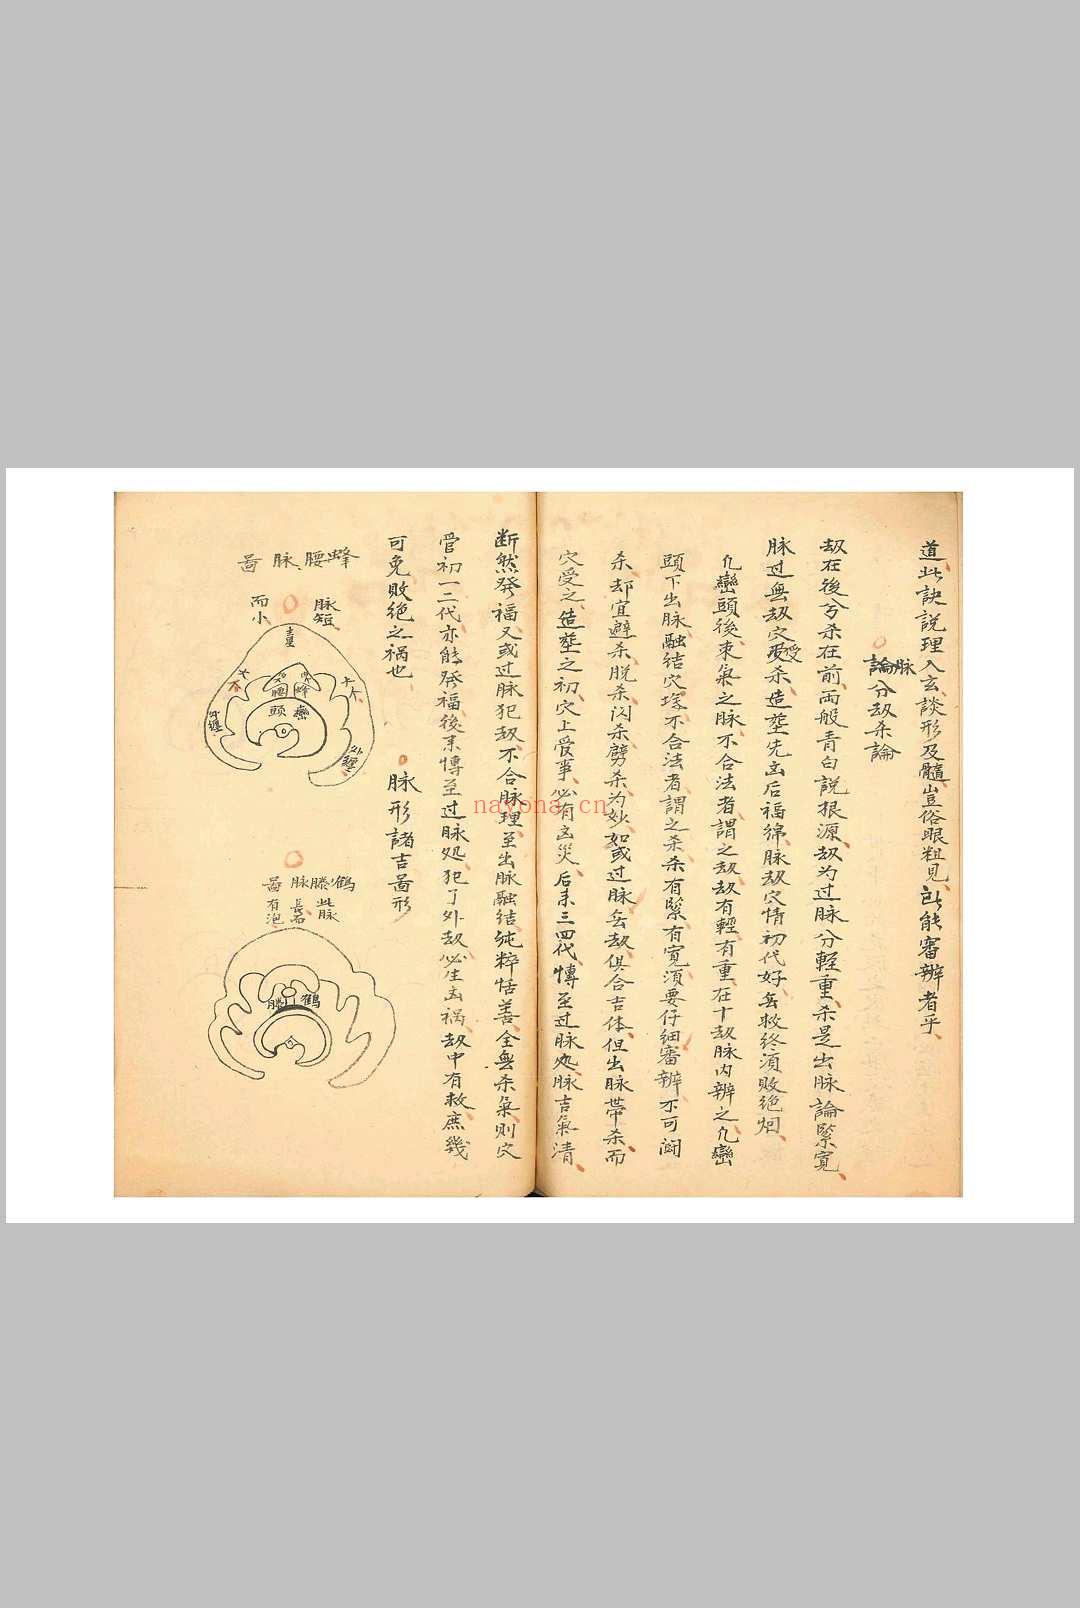 道此訣説理入玄談形及髓豈俗眼粗見
能審辦者乎
論脉分刼杀論
刼在後兮杀在前両般青白説根源刼为过脉分軽重杀是出脉論緊寬
脉过無刼穴受杀造塟先凶后福綿脉刼穴情初代好無救終須敗絶烟
凢巒頭後束氣之脉不合法者謂之刼刼有軽有重在十刼脉内辨之凢巒
頭下出脉融結穴塲不合法者謂之杀杀有緊有寬須要仔細審辨不可濶
杀却宜避杀脱杀闪杀劈杀为妙如或过脉無刼俱合吉体但出脉带杀而
穴受之造塟之初穴上受事必有凶災后末三四代傳至过脉处脉吉氣清
断然発福又或过脉犯刼不合脉理至出脉融結純粹恬善全無杀氣則穴
管初一二代亦能発福後末傳至过脉処犯了外刼必生凶禍刼中有救庶幾
可免敗絶之禍也
脉形諸吉啚形
蜂腰脉啚
脉短
而小
主星
蜂腰
巒頭
外纒
外纒
鶴膝脉啚
此脉
長
有泡
鶴膝
nayona.cn